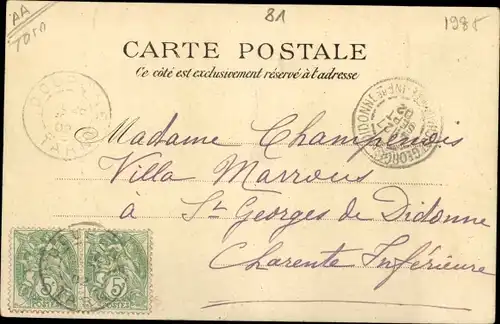 AA
TOTO
81
1985
CARTE POSTALE
Ce côté est exclusivement réservé à l'adresse
Madame Champenois
Villa Marrous
à St Georges de Didonne
Charente Inférieure
SEPT
02
5 5
POSTES POSTES